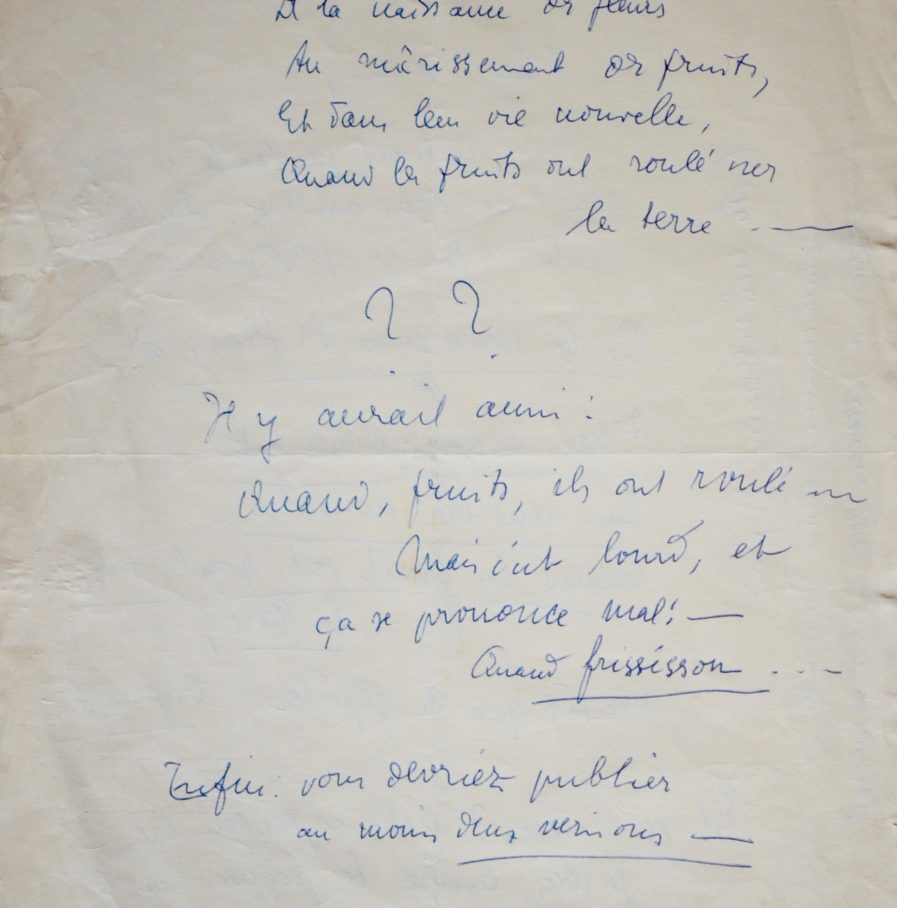 À la naissance des fleurs
Au mûrissement des fruits,
Et dans leur vie nouvelle,
Quand les fruits ont roulé vers
la terre —
? ?
Il y aurait aussi :
Quand, fruits, ils ont roulé
Mais c'est lourd, et
ça se prononce mal : —
Quand frississon ...
Enfin : vous devriez publier
au moins deux versions —